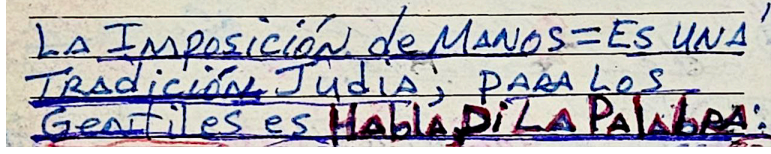 LA IMPosición de MANOS = Es UNA
TRAdición Judia; PARA Los
Gentiles es HablA, Di LA PAlAbRA: